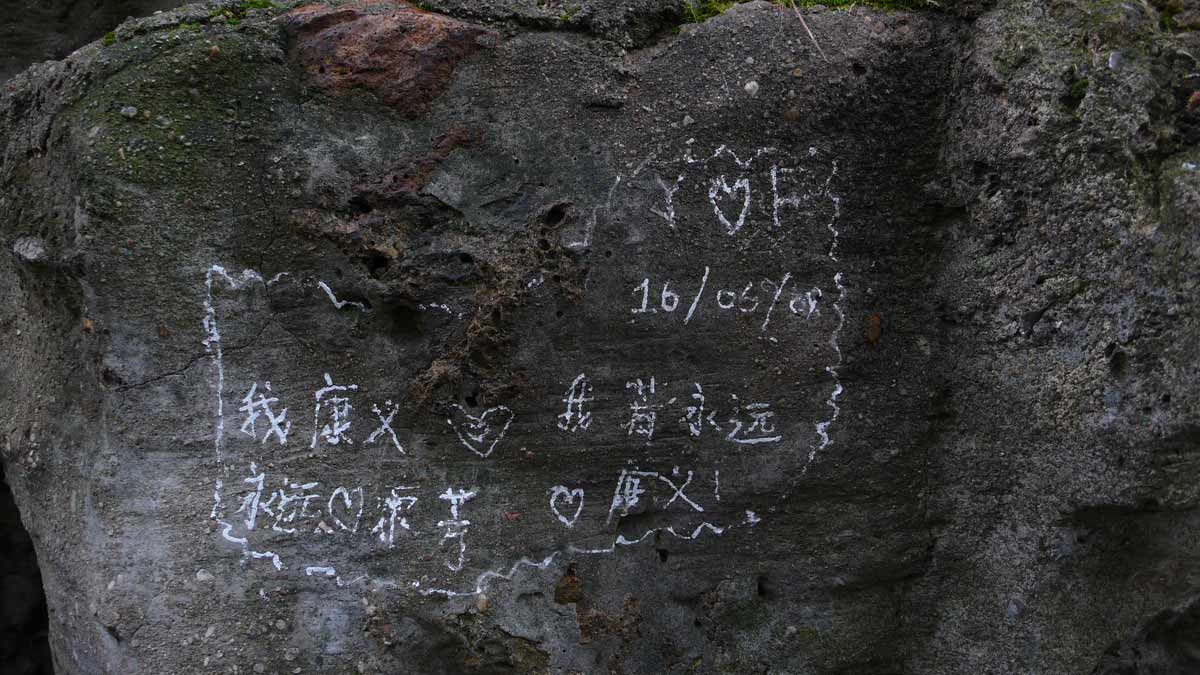 Y ♡ F
16/05/08
我康义 ♡ 我芳永远
永远♡康芳 ♡ 康义!